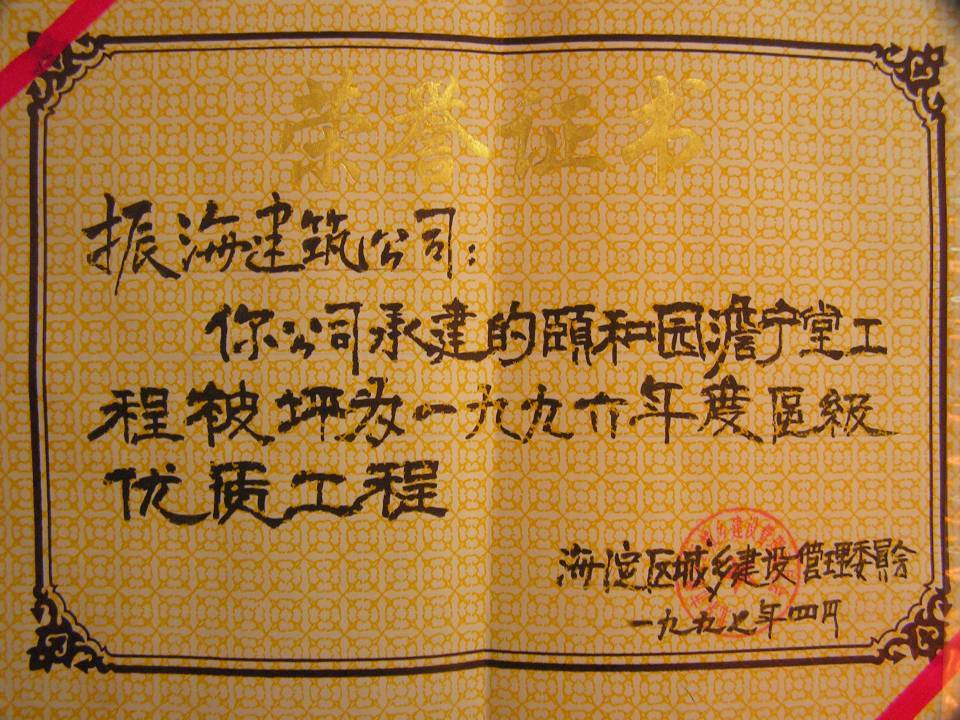 荣誉证书
振海建筑公司：
你公司承建的颐和园澹宁堂工
程被坪为一九九六年度區级
优质工程
海淀区城乡建设管理委員会
一九九七年四月